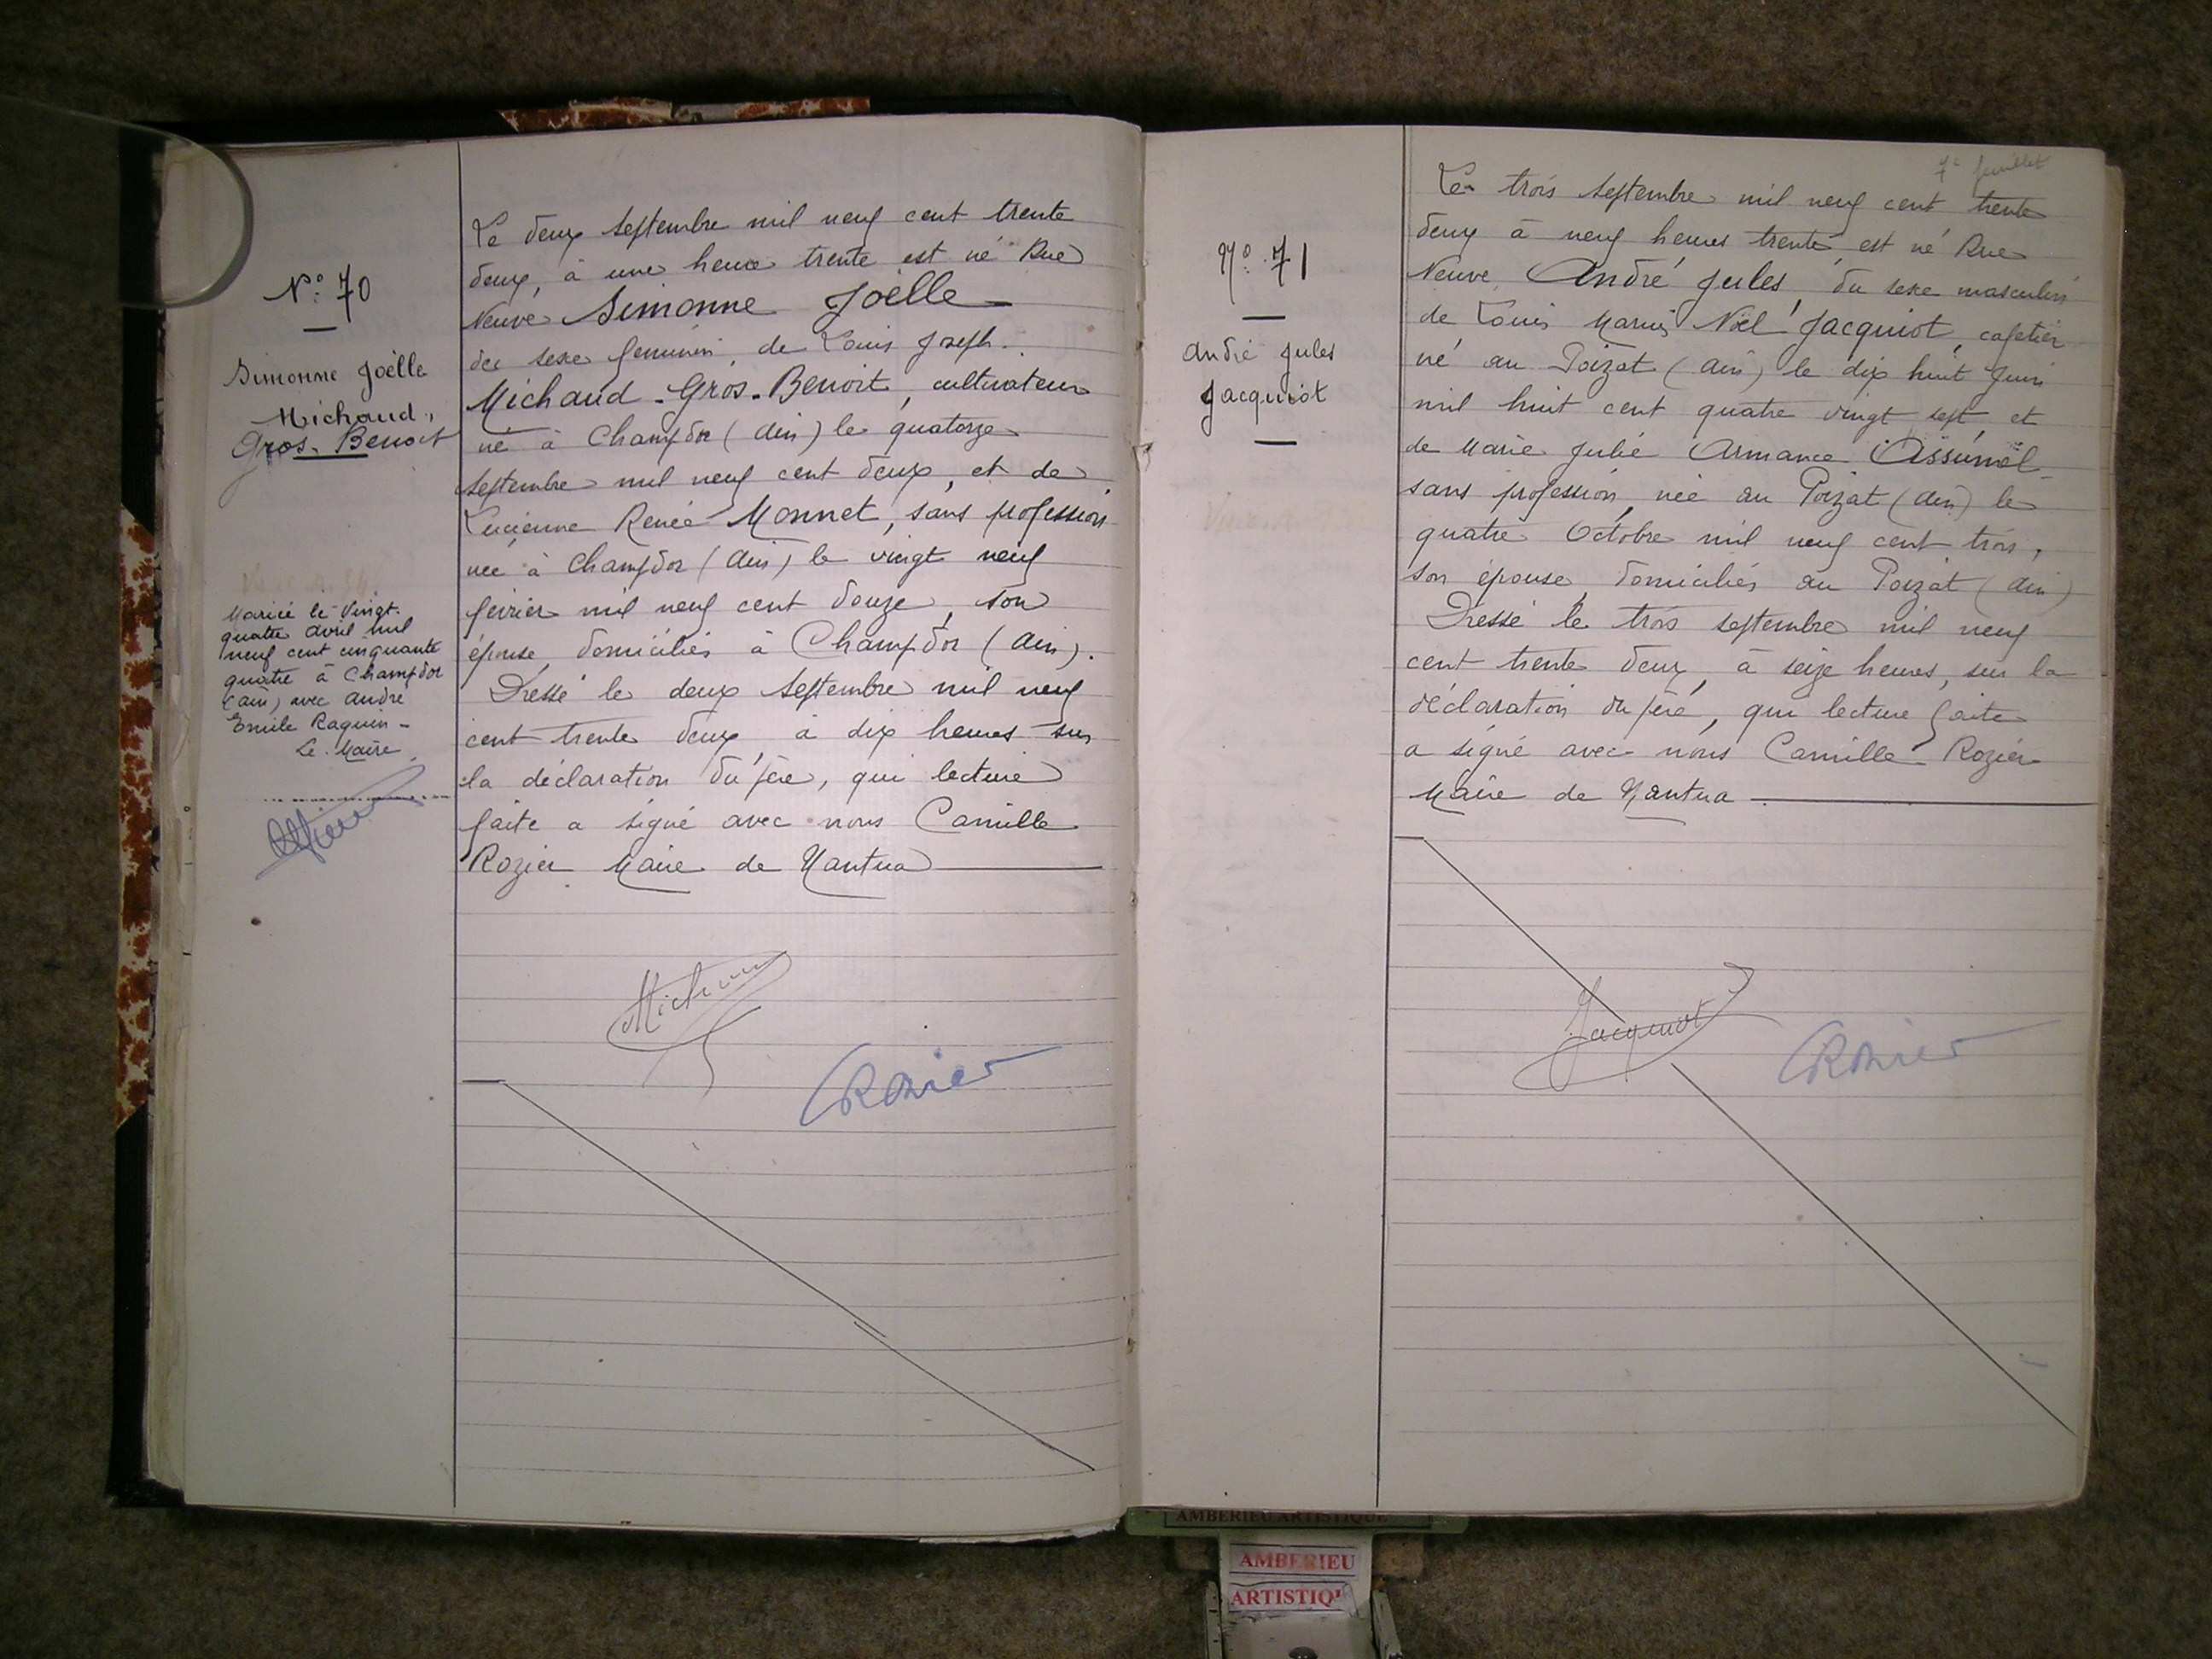 N°: 70
Simonne Joëlle
Michaud,
Gros-Benoit
Marié le Vingt-
quatre avril mil
neuf cent cinquante
quatre à Champdor
(ain) avec André
Emile Raquin -
Le Maire
Le deux septembre mil neuf cent trente
deux, à une heure trente est né Rue
Neuve Simonne Joëlle
du sexe féminin, de Louis Joseph
Michaud-Gros-Benoit, cultivateur
né à Champdor (Ain) le quatorze
septembre mil neuf cent deux, et de
Lucienne Renée Monnet, sans profession
née à Champdor (Ain) le vingt neuf
février mil neuf cent douze, son
épouse, domiciliés à Champdor (Ain).
Dressé le deux septembre mil neuf
cent trente deux, à dix heures sur
la déclaration du père, qui lecture
faite a signé avec nous Camille
Rozier Maire de Nantua
Michaud
CRozier
7e feuillet
N°. 71
André Jules
Jacquiot
Le trois septembre mil neuf cent trente
deux à neuf heures trente, est né Rue
Neuve, André Jules, du sexe masculin
de Louis Marius Noël Jacquiot, cafetier
né au Poizat (Ain) le dix huit Juin
mil huit cent quatre vingt sept, et
de Marie Julie Armance Assumël
sans profession, née au Poizat (Ain) le
quatre Octobre mil neuf cent trois,
son épouse, domiciliés au Poizat (Ain)
Dressé le trois septembre mil neuf
cent trente deux, à seize heures, sur la
déclaration du père, qui lecture faite
a signé avec nous Camille Rozier
Maire de Nantua
Jacquiot
CRozier
AMBERIEU ARTISTIQUE
AMBERIEU
ARTISTIQ